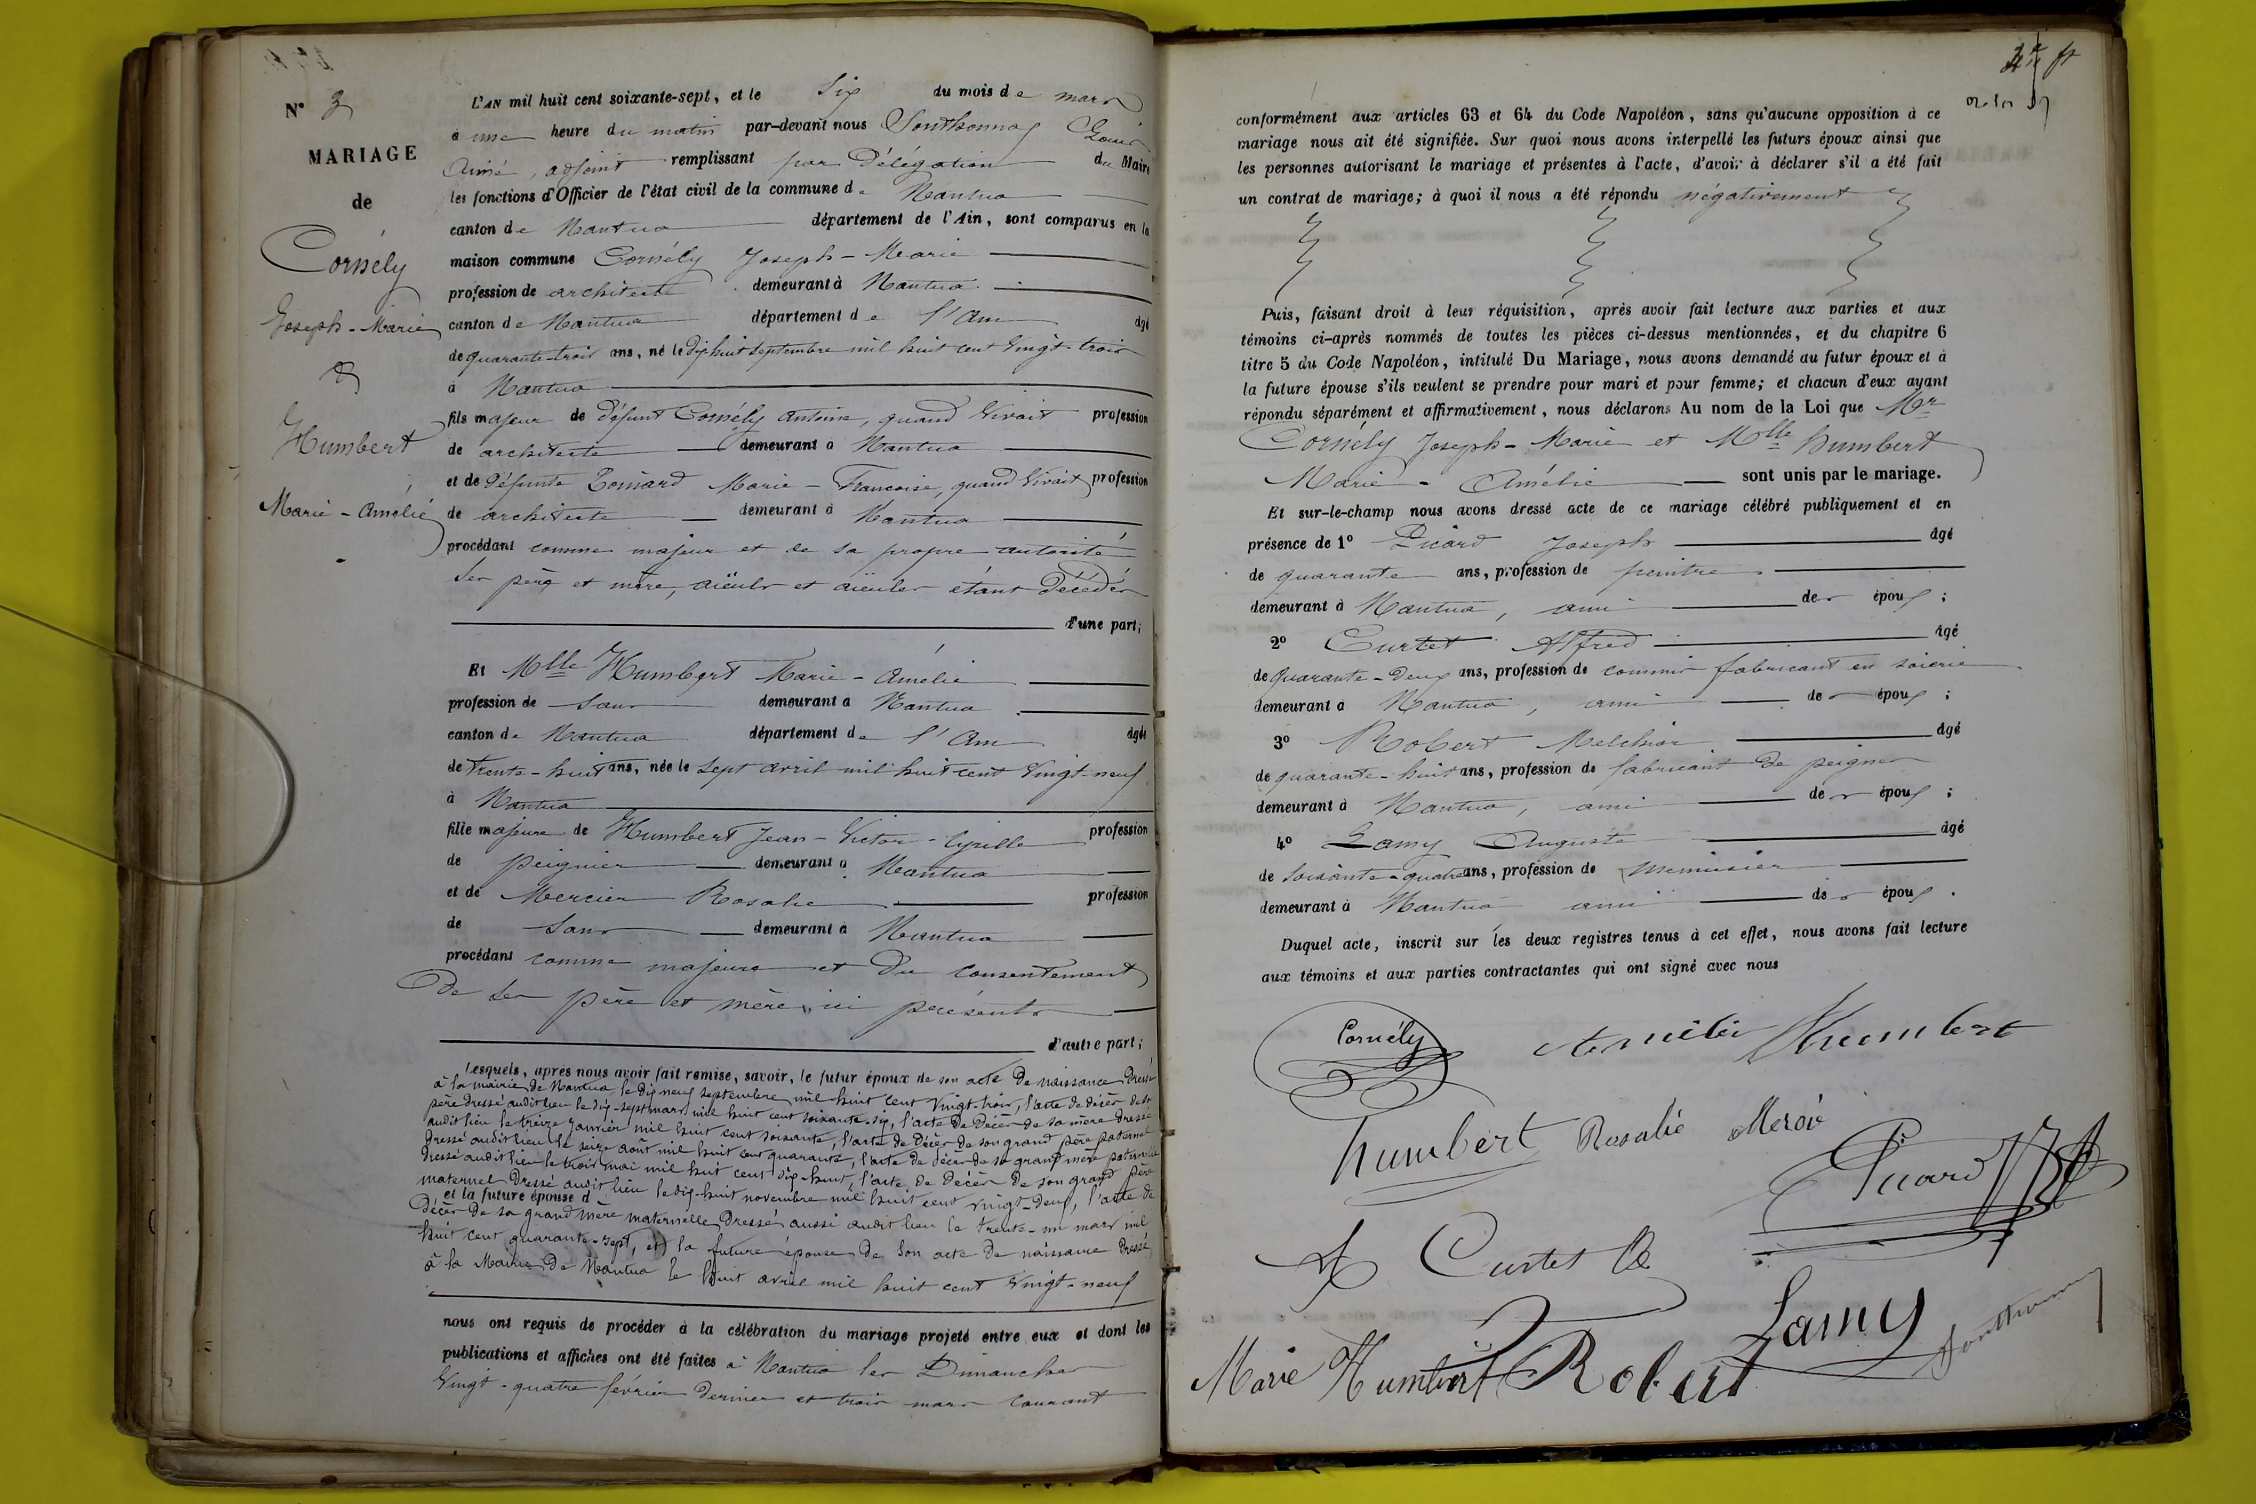 N° 3
MARIAGE
de
Cornély
Joseph-Marie
&
Humbert
Marie-Amélie
L'AN mil huit cent soixante-sept, et le Six du mois de mars
à une heure du matin par-devant nous Southonnax Louis
Aimé, adjoint remplissant par Délégation du Maire
les fonctions d'Officier de l'état civil de la commune de Nantua
canton de Nantua département de l'Ain, sont comparus en la
maison commune Cornély Joseph-Marie
profession de architecte demeurant à Nantua
canton de Nantua département de l'Ain âgé
de quarante-trois ans, né le dix huit septembre mil huit cent vingt-trois
à Nantua
fils majeur de défunt Cornély Antoine, quand vivait profession
de architecte demeurant à Nantua
et de défunte Marie-Francoise, quand vivait profession
de architecte demeurant à Nantua
procédant comme majeur et de sa propre autorité
ses père et mère, aïeuls et aïeules étant décédés
d'une part;
Et Mlle Humbert Marie-Amélie
profession de sans demeurant à Nantua
canton de Nantua département de l'Ain âgée
de trente-huit ans, née le sept avril mil huit cent vingt-neuf
à Nantua
fille majeure de Humbert Jean-Victor-Cyrille profession
de peignier demeurant à Nantua
et de Mercier Rosalie profession
de sans demeurant à Nantua
procédant comme majeure et du consentement
de ses père et mère ici présents
d'autre part;
Lesquels, après nous avoir fait remise, savoir, le futur époux de son acte de naissance dressé
à la mairie de Nantua le dix neuf septembre mil huit cent vingt-trois, l'acte de décès de son
père dressé audit lieu le dix-sept mars mil huit cent soixante-six, l'acte de décès de sa mère dressé
audit lieu le treize janvier mil huit cent soixante, l'acte de décès de son grand père paternel
dressé audit lieu le seize août mil huit cent quarante, l'acte de décès de sa grand mère paternelle
dressé audit lieu le trois mai mil huit cent dix-huit, l'acte de décès de son grand père
maternel dressé audit lieu le dix-huit novembre mil huit cent vingt-deux, l'acte de
et la future épouse d
décès de sa grand mère maternelle dressé aussi audit lieu le trente-un mars mil
huit cent quarante-sept, et la future épouse de son acte de naissance dressé
à la Mairie de Nantua le huit avril mil huit cent vingt-neuf
nous ont requis de procéder à la célébration du mariage projeté entre eux et dont les
publications et affiches ont été faites à Nantua les Dimanches
vingt-quatre février dernier et trois mars courant
conformément aux articles 63 et 64 du Code Napoléon, sans qu'aucune opposition à ce
mariage nous ait été signifiée. Sur quoi nous avons interpellé les futurs époux ainsi que
les personnes autorisant le mariage et présentes à l'acte, d'avoir à déclarer s'il a été fait
un contrat de mariage; à quoi il nous a été répondu négativement
Puis, faisant droit à leur réquisition, après avoir fait lecture aux parties et aux
témoins ci-après nommés de toutes les pièces ci-dessus mentionnées, et du chapitre 6
titre 5 du Code Napoléon, intitulé Du Mariage, nous avons demandé au futur époux et à
la future épouse s'ils veulent se prendre pour mari et pour femme; et chacun d'eux ayant
répondu séparément et affirmativement, nous déclarons Au nom de la Loi que Mr
Cornély Joseph-Marie et Mlle humbert
Marie-Amélie sont unis par le mariage.
Et sur-le-champ nous avons dressé acte de ce mariage célébré publiquement et en
présence de 1° Picard Joseph âgé
de quarante ans, profession de peintre
demeurant à Nantua, ami des époux;
2° Curtet Alfred âgé
de quarante-deux ans, profession de commis fabricant en soierie
demeurant à Nantua, ami des époux;
3° Robert Melchior âgé
de quarante-huit ans, profession de fabricant de peignes
demeurant à Nantua, ami des époux;
4° Lamy Auguste âgé
de soixante-quatre ans, profession de menuisier
demeurant à Nantua ami des époux.
Duquel acte, inscrit sur les deux registres tenus à cet effet, nous avons fait lecture
aux témoins et aux parties contractantes qui ont signé avec nous
Cornély
Amélie Humbert
humbert Rosalie Mercié
Picard
Curtet
Lamy
Marie Humbert Robert